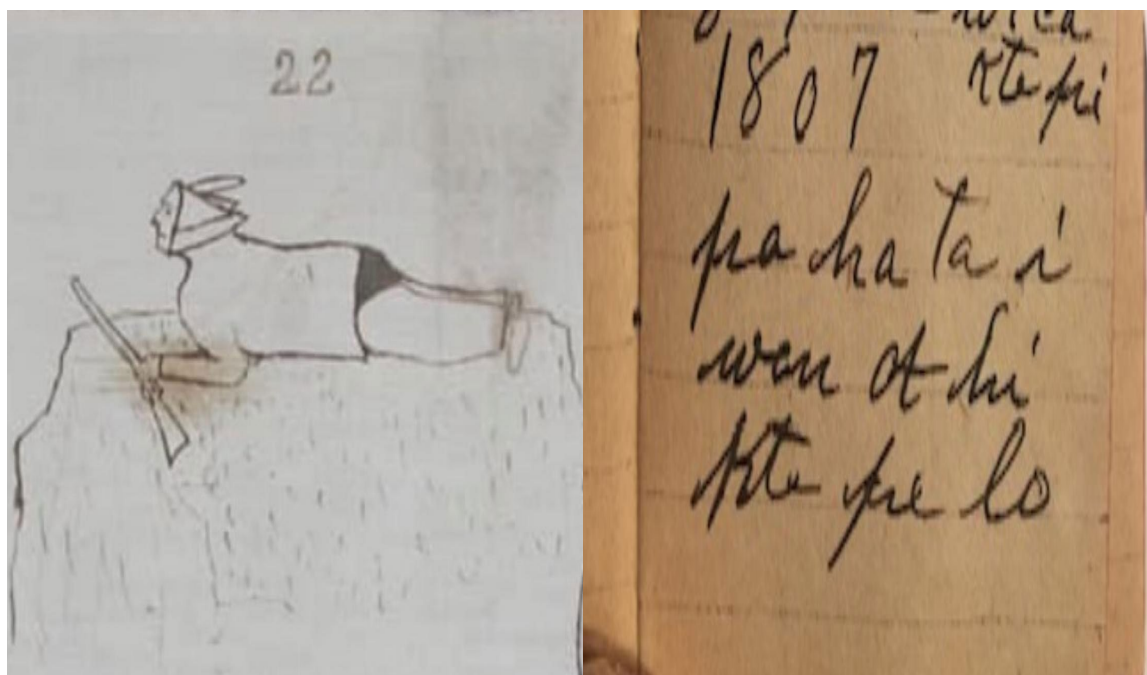 22
1807 Kte pi
pa ha ta i
wan
Kte pe lo